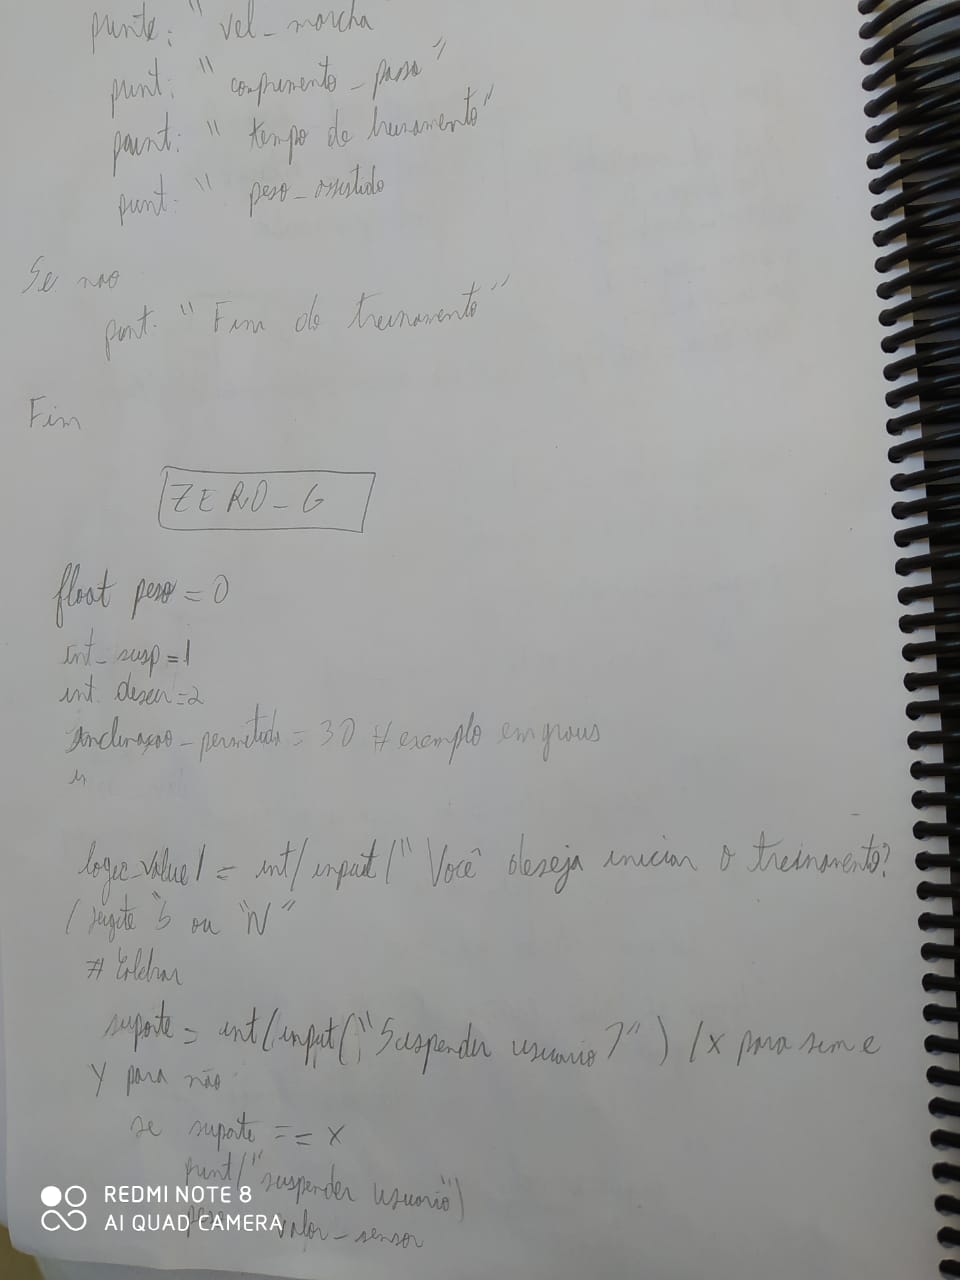 punte: " vel_marcha
punt: " comprimento_passo "
paint: " tempo de treinamento"
punt: " peso_assistido
Se não
pont. " Fim do treinamento "
Fim
ZERO_G
float peso = 0
int_ susp = 1
int. descer = 2
inclinação_permitida = 30 # exemplo em graus
logic_value1 = int( input (" Você deseja iniciar o treinamento?
/ ou "N"
#
suporte = int(input("Suspender usuario?") /x para sim e
Y para não
se suporte == x
punt("suspender usuario")
valor_sensor
REDMI NOTE 8
AI QUAD CAMERA